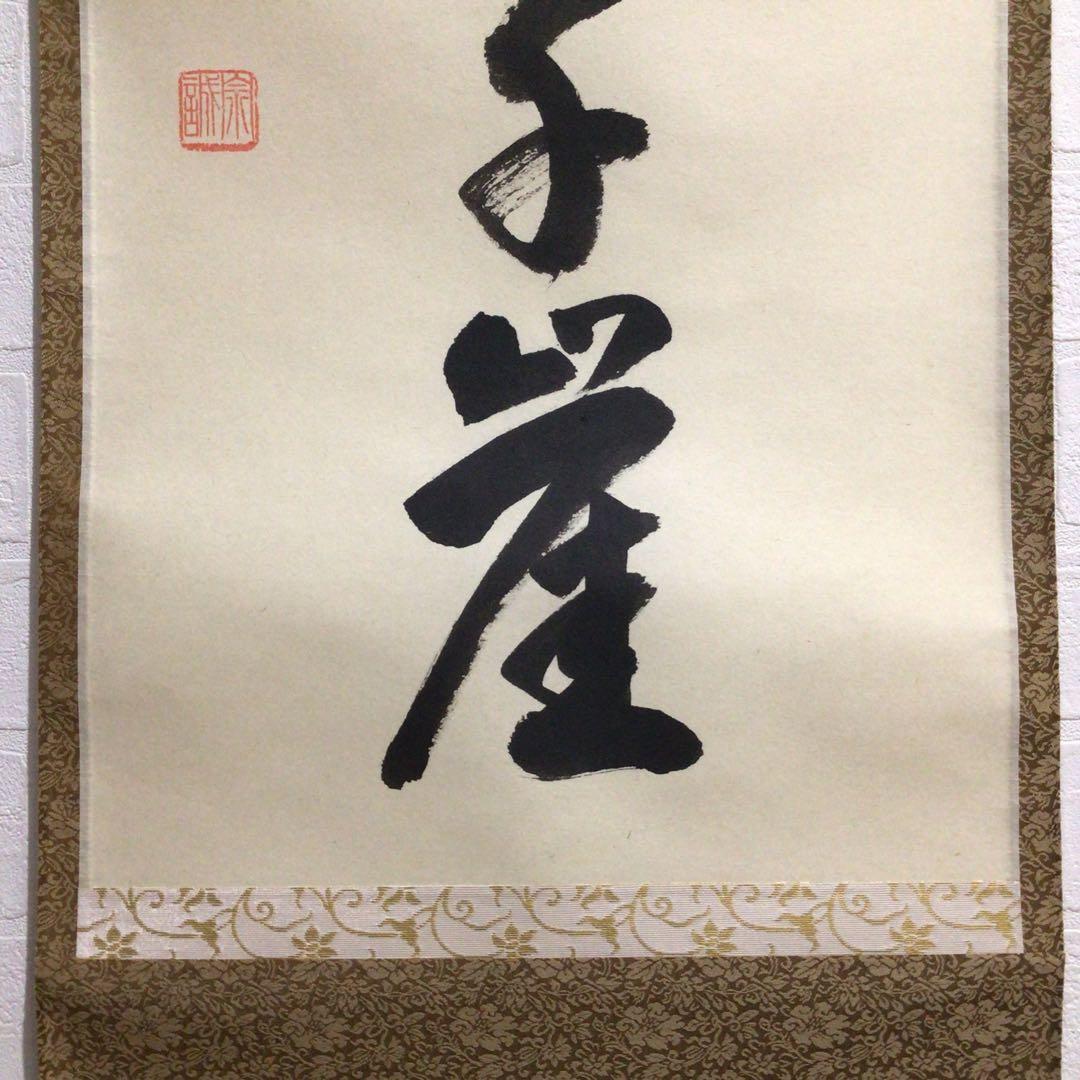 千崖
宗誠